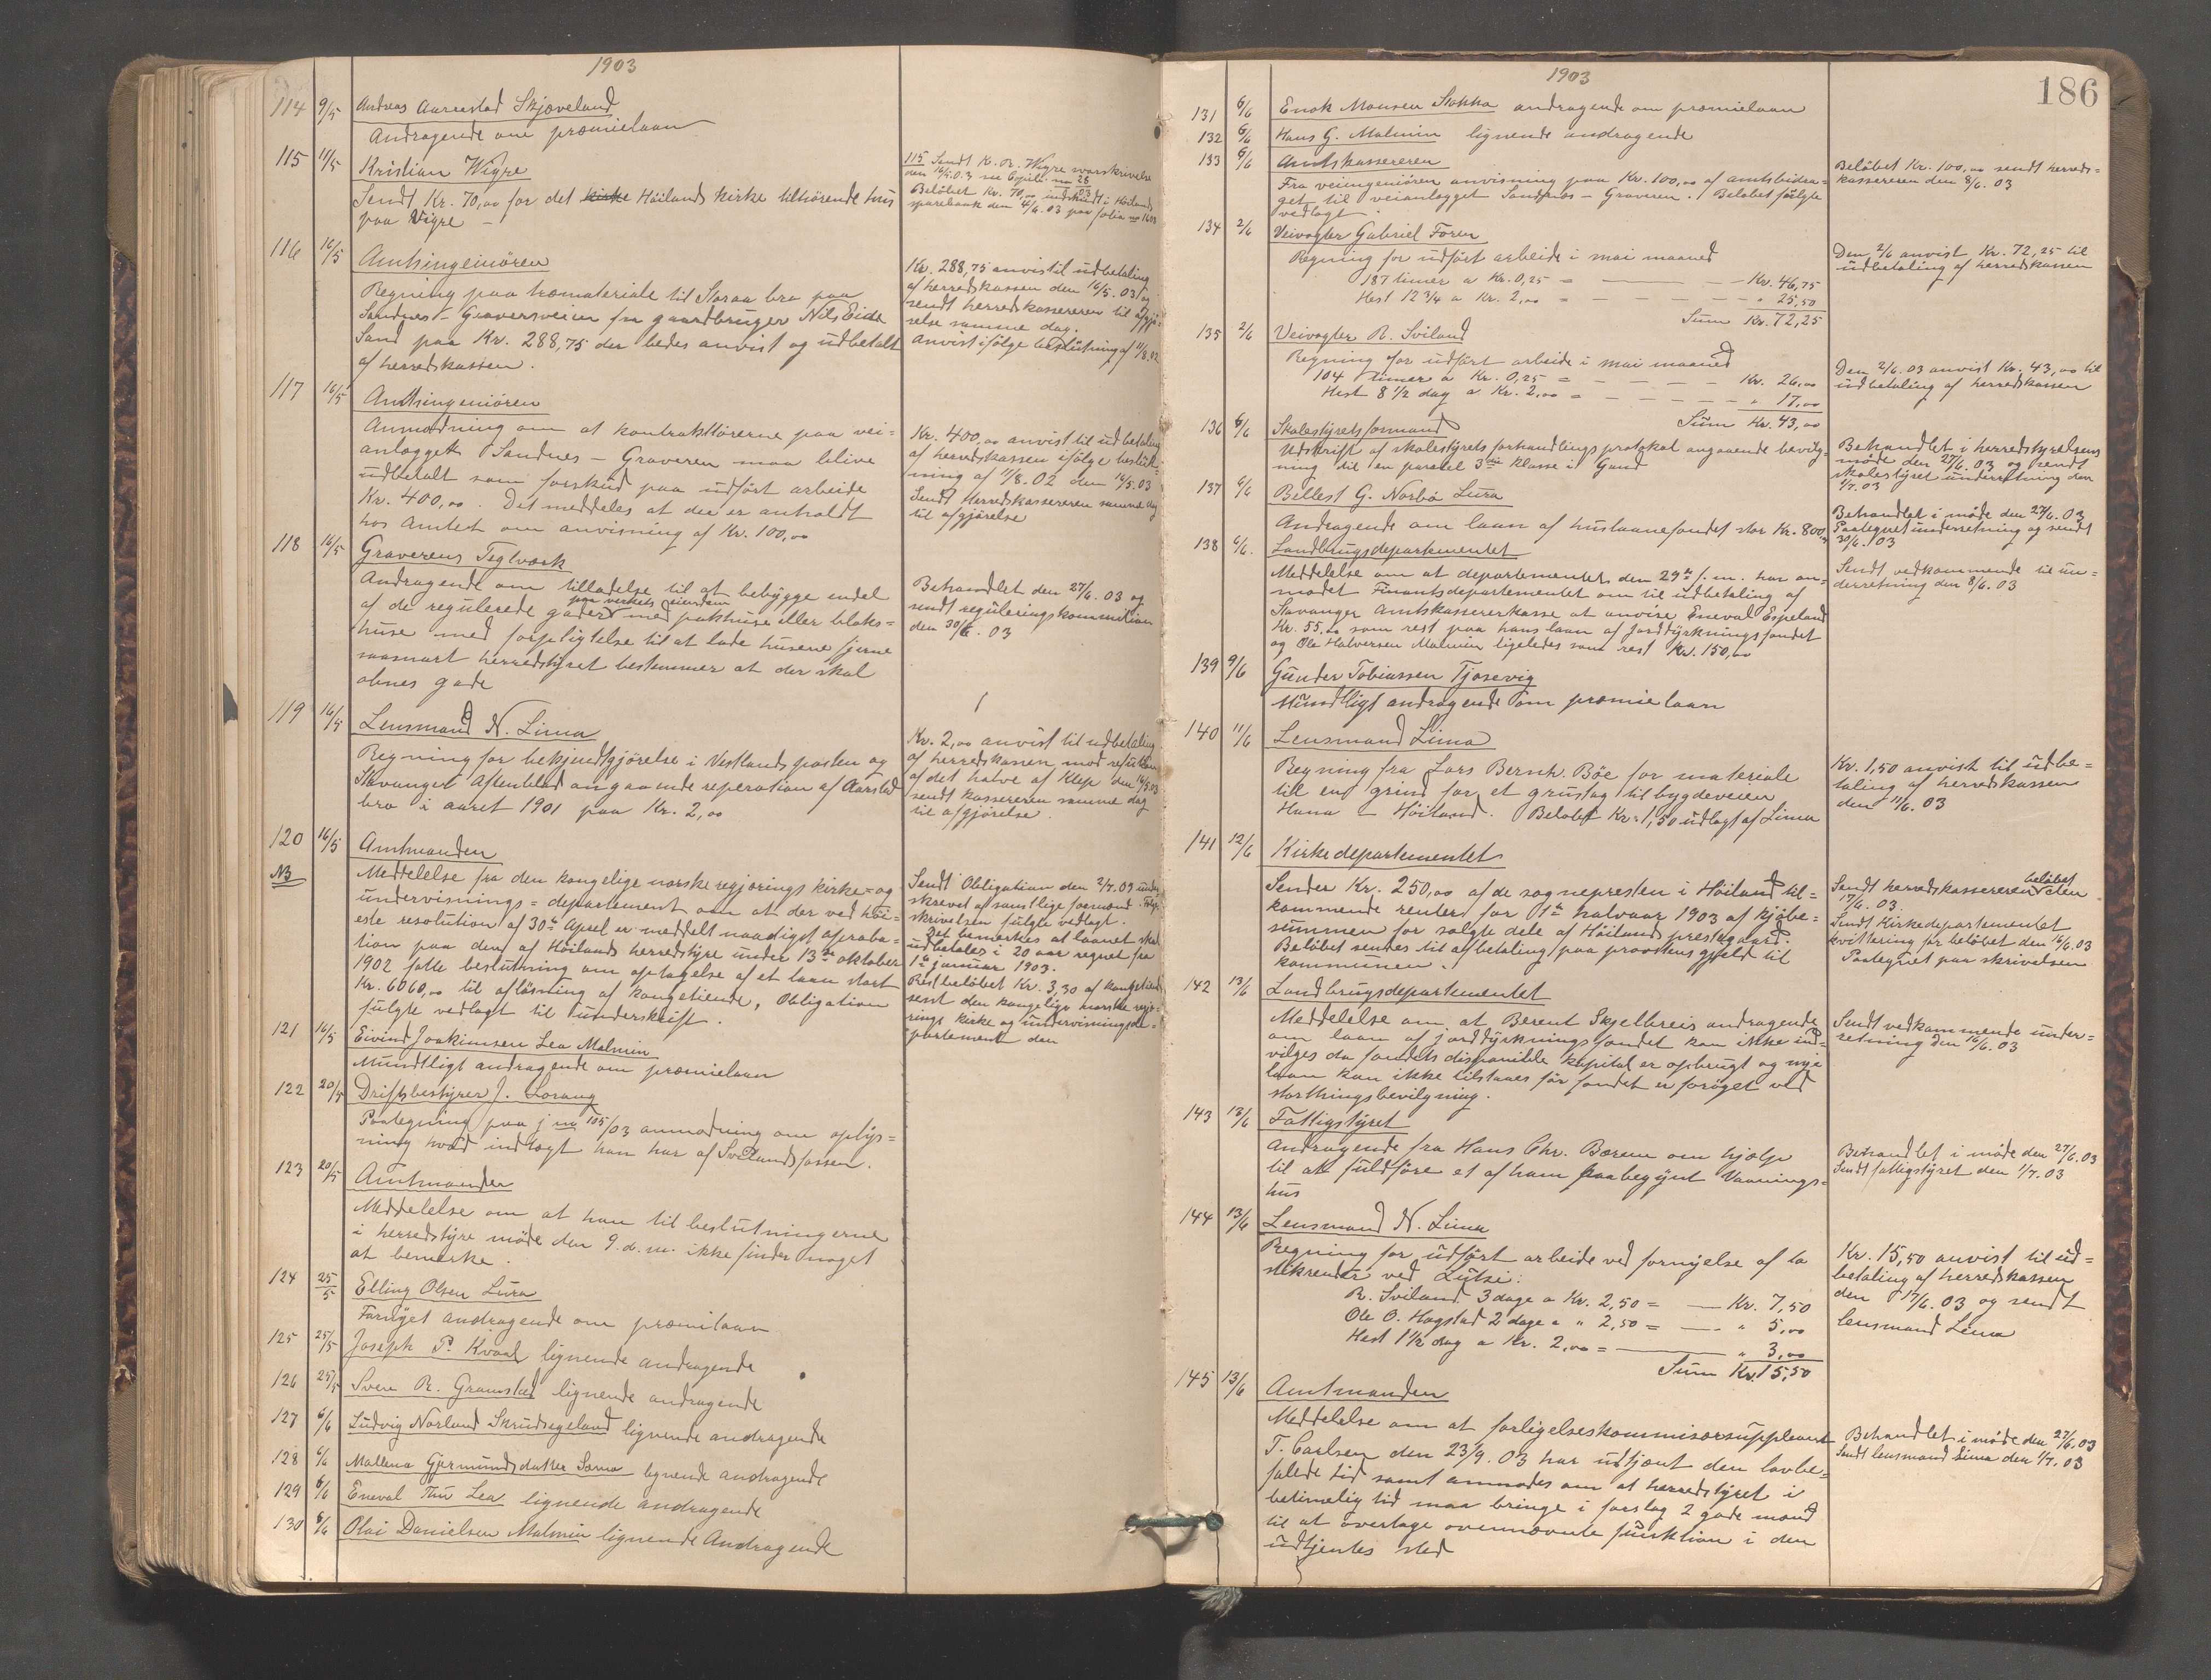 1903
114 9/5 Andreas Aarrestad Skjæveland
Andragende om præmielaan
115 11/5 Kristian Wigre
Sendt Kr. 70,00 for det kirke Höilands kirke tilhörende hus
paa Vigre –
115 Sendt K. R. Wigre svarskrivelse
den 16/5.03 se Copib. no 28
Belöbet Kr. 70,00 indskudt i Höilands
sparebank den 4/6.03 paa folio no
116 16/5 Amtsingeniören
Regning paa træmateriale til Storaa bro paa
Sandnes – Graversveien fra gaardbruger Nils Eide
Sand paa Kr. 288,75 der bedes anvist og udbetalt
af herredskassen.
Kr. 288,75 anvist til udbetaling
af herredskassen den 16/5.03 og
sendt herredskassereren til afgjö-
relse samme dag.
Anvist ifölge beslutning af 11/8.02
117 16/5 Amtsingeniören
Anmodning om at kontraktörerne paa vei-
anlægget Sandnes – Graveren maa blive
udbetalt som forskud paa udfört arbeide
Kr. 400,00. Det meddeles at der er anholdt
hos Amtet om anvisning af Kr. 100,00
Kr. 400,00 anvist til udbetaling
af herredskassen ifölge beslut-
ning af 11/8.02 den 16/5.03
Sendt Herredskassereren samme dag
til afgjörelse
118 16/5 Graverens Teglværk
Andragende om tilladelse til at bebygge endel
paa verkets eiendom
af de regulerede gader med pakhuse eller bloks-
huse med forpligtelse til at lade husene fjerne
saasnart herredstyret bestemmer at der skal
abnes gade
Behandlet den 27/6.03 og
sendt reguleringskommission
den 30/6.03
119 16/5 Lensmand N. Lima
Regning for bekjendtgjörelse i Vestlandsposten og
Stavanger Aftenblad angaaende reperation af Aarslad
bro i aaret 1901 paa Kr. 2,00
Kr. 2,00 anvist til udbetaling
af herredskassen mod refusion
af det halve af Klep den 16/5.03
sendt kassereren samme dag
til afgjörelse.
120 16/5 Amtmanden
NB
Meddelelse fra den kongelige norske regjerings kirke- og
undervisnings-departement om at der ved höi-
este resolution af 30te April er meddelt naadigst aproba-
tion paa den af Höilands herredstyre under 13de oktober
1902 fatte beslutning om optagelse af et laan stort
Kr. 6060,00 til aflösning af kongetiende. Obligation
fulgte vedlagt til underskrift.
Sendt Obligation den 2/7.03 under-
skrevet af samtlige formænd. Fölge-
skrivelsen fulgte vedlagt.
Det bemerkes at laanet skal
udbetales i 20 aar regnet fra
1te januar 1903.
Restbelöbet Kr. 3,30 af kongetiende
sent den kongelige norske regje-
rings kirke og undervisningsde-
partement den
121 16/5 Eivind Joakimsen Lea Malmin
Mundtligt andragende om præmielaan
122 20/5 Driftsbestyrer J. Lorang
Paategning paa j no 105/03 anmodning om oplys-
ning hvad indtægt han har af Svilandsfossen.
123 20/5 Amtmanden
Meddelelse om at han til beslutningerne
i herredstyre möde den 9. d.m. ikke finder noget
at bemerke.
124 25/5 Elling Olsen Lura
Fornyet andragende om præmielaan
125 25/5 Joseph P. Kvaal lignende andragende
126 25/5 Sven R. Gramstad lignende andragende
127 6/6 Ludvig Norland Skrudsegeland lignende andragende
128 6/6 Mallena Gjermundsdatter Soma lignende andragende
129 6/6 Eneval Thu Lea lignende andragende
130 6/6 Olai Danielsen Malmin lignende Andragende
186
1903
131 6/6 Enok Monsen Stokka andragende om præmielaan
132 6/6 Hans G. Malmin lignende andragende
133 6/6 Amtskassereren
Fra veiingeniören anvisning paa Kr. 100,00 af amtsbidra-
get til veianlægget Sandnes – Graveren. Beløbet fölgte
vedlagt.
Belöbet Kr. 100,00 sendt herreds-
kassereren den 8/6.03
134 2/6 Veivogter Gabriel Foren
Regning for udfört arbeide i mai maaned
187 timer a Kr. 0,25 = — Kr. 46,75
Hest 12 3/4 a Kr. 2,00 = — " 25,50
Sum Kr. 72,25
Den 2/6 anvist Kr. 72,25 til
udbetaling af herredskassen
135 2/6 Veivogter R. Sviland
Regning for udfört arbeide i mai maaned
104 timer a Kr. 0,25 = — Kr. 26,00
Hest 8 1/2 dag a Kr. 2,00 = — " 17,00
Sum Kr. 43,00
Den 2/6.03 anvist Kr. 43,00 til
udbetaling af herredskassen
136 6/6 Skolestyrets formand
Udskrift af skolestyrets forhandlings protokol angaaende bevilg-
ning til en paralel 3die klasse i Gand
Behandlet i herredstyrelsens
möde den 27/6.03 og sendt
skolestyret underretning den
1/7.03
137 6/6 Bellest G. Norbö Lura
Andragende om laan af huslaanefondet stor Kr. 800,00
Behandlet i möde den 27/6.03
Paategnet underretning og sendt
30/6.03
138 6/6. Landbrugsdepartementet
Meddelelse om at departementet den 29de f.m. har an-
modet Finantsdepartementet om til udbetaling af
Stavanger Amtskassererkasse at anvise Eneval Espeland
Kr. 55,00 som rest paa hans laan af jorddyrkningsfondet
og Ole Halversen Malmin ligeledes som rest Kr. 150,00
Sendt vedkommende til un-
derretning den 8/6.03
139 9/6 Gunder Tobiassen Tjosevig
Mundtligt andragende om præmielaan
140 11/6 Lensmand Lima
Regning fra Lars Bernh. Böe for materiale
till en grind for et grustag til bygdeveien
Hana – Höiland. Beløbet Kr. 1,50 udlagt af Lima
Kr. 1,50 anvist til udbe-
taling af herredskassen
den 11/6.03
141 12/6 Kirkedepartementet
Sender Kr. 250,00 af de sognepresten i Höiland til-
kommende renter for 1te halvaar 1903 af kjöbe-
summen for solgte dele af Höilands prestegaard.
Beløbet sendes til afbetaling paa provstens gjeld til
kommunen.
Sendt herredskassereren beløbet den
17/6.03.
Sendt Kirkedepartementet
kvittering for beløbet den 16/6.03
Paategnet paa skrivelsen
142 13/6 Landbrugsdepartementet
Meddelelse om at Berent Skjelbreis andragende
om laan af jorddyrkningsfondet kan ikke ind-
vilges da fondets disponible kapital er opbrugt og nye
laan kan ikke tilstaaes för fondet er foröget ved
storthingsbevilgning.
Sendt vedkommende under-
retning den 16/6.03
143 13/6 Fattigstyret
Andragende fra Hans Chr. Bærem om hjælp
til at fuldföre et af ham paabegynt Vaanings-
hus
Behandlet i möde den 27/6.03
Sendt fattigstyret den 1/7.03
144 13/6 Lensmand N. Lima
Regning for udfört arbeide ved fornyelse af to
stikrender ved Lutsi:
R. Sviland 3 dage a Kr. 2,50 = — Kr. 7,50
Ole O. Hogstad 2 dage a " 2,50 = — " 5,00
Hest 1 1/2 dag a Kr. 2,00 = — " 3,00
Sum Kr. 15,50
Kr. 15,50 anvist til ud-
betaling af herredskassen
den 17/6.03 og sendt
lensmand Lima
145 13/6 Amtmanden
Meddelelse om at forligelseskommisærsuppleant
T. Carlsen den 23/9.03 har udtjent den lovbe-
falede tid samt anmodes om at herredstyret i
betimelig tid maa bringe i forslag 2 gode mænd
til at overtage ovennævnte funktion i den
udtjentes sted
Behandlet i möde den 27/6.03
Sendt lensmand Lima den 1/7.03